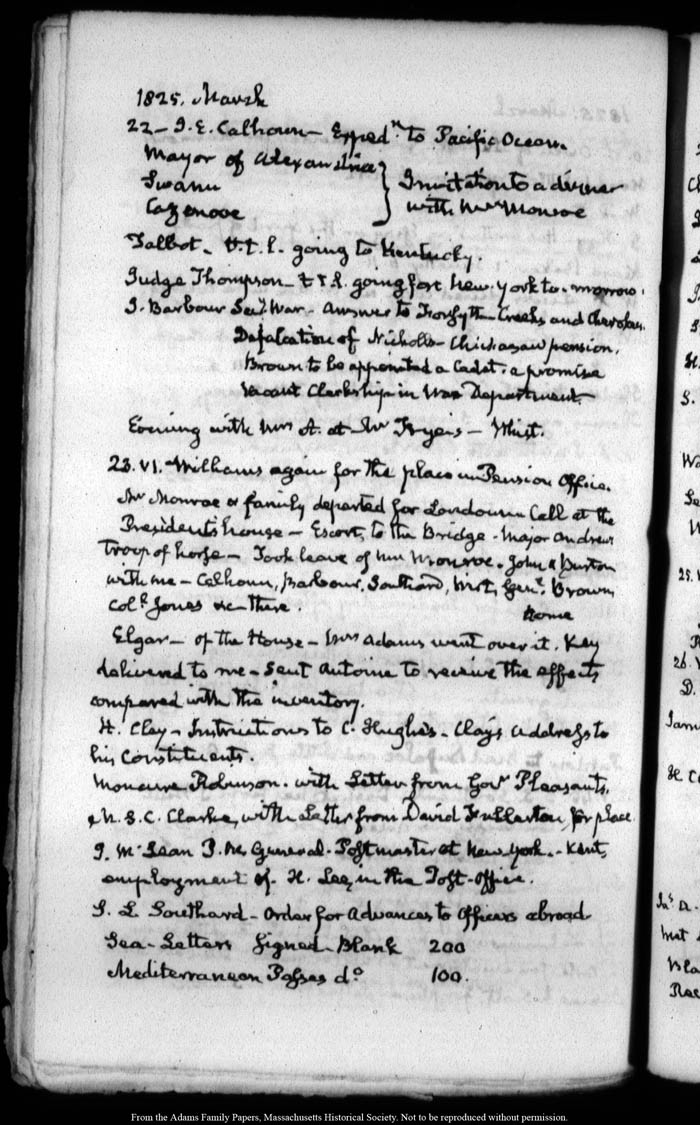 1825. March
22 - J. E. Calhoun - Expedn to Pacific Ocean.
Mayor of Alexandria
Swann
Cazenove
} Invitation to a dinner
with Mr Monroe
Talbot - t.t.l. going to Kentucky.
Judge Thompson - t.t.l. going for New-York to-morrow.
J. Barbour Secy War - Answer to Forsyth - Creeks and Cherokees.
Defalcation of Nicholls - Chickasaw pension.
Brown to be appointed a Cadet. a promise
Vacant Clerkship in War Department
Evening with Mrs A. at Mr Frye's - Whist.
23. VI. Williams again for the place in Pension Office.
Mr Monroe & family departed for Loudoun Call at the
Presidents house - Escort, to the Bridge - Major Andrews
troop of horse - Took leave of Mrs Monroe. John & Burton
with me - Calhoun, Barbour, Southard, Wirt, Genl. Brown
Coll. Jones &c there.
Home
Elgar - of the House - Mrs Adams went over it. Key
delivered to me - Sent Antoine to receive the effects
compared with the inventory.
H. Clay - Instructions to C. Hughes. Clay's address to
his Constituents.
Moncure Robinson. with Letter from Govr Pleasants,
& M. S. C. Clarke, with Letter from David Fullerton, for place
J. McLean P. M. General. Postmaster at New York. - Kent,
employment of H. Lee, in the Post-Office.
S. L. Southard - Order for Advances to Officers abroad
Sea-Letters Signed - Blank 200
Mediterranean Passes do 100.
From the Adams Family Papers, Massachusetts Historical Society. Not to be reproduced without permission.